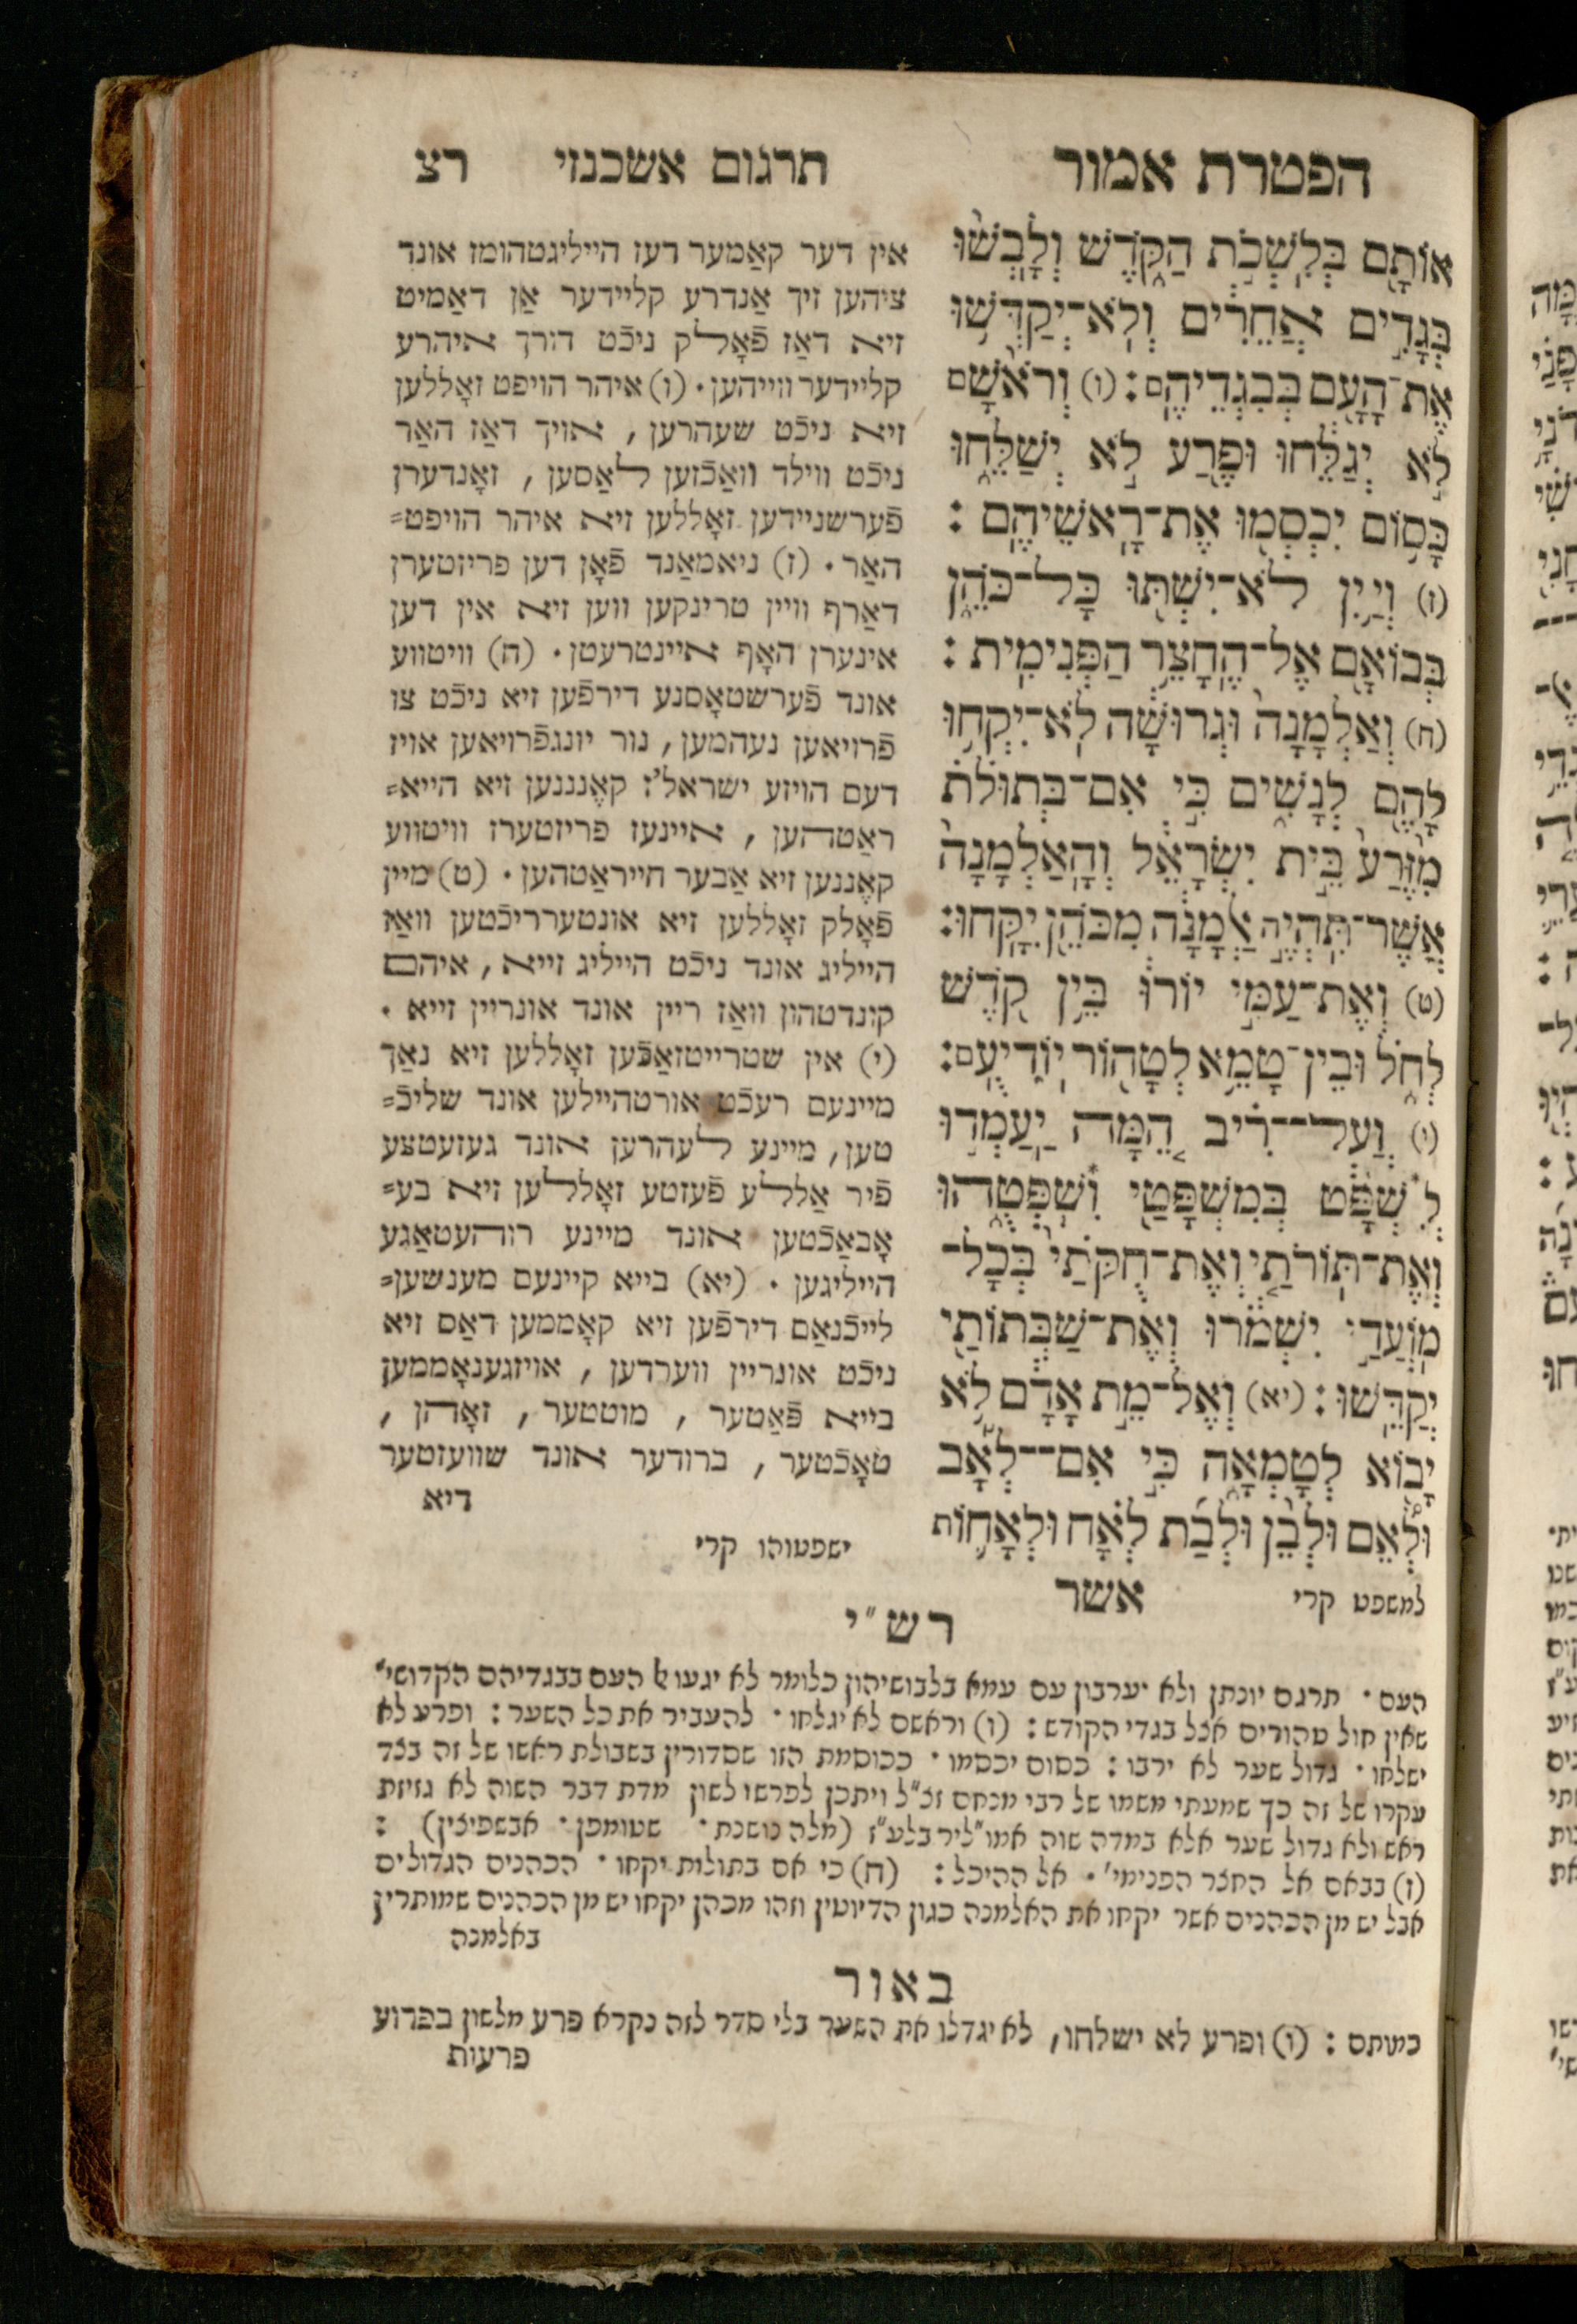 הפטרת אמור
תרגום אשכנזי רצ
אוֹתָם בְּלִשְׁכֹת הַקֹּדֶשׁ וְלָבְשׁוּ
בְּגָדִים אֲחֵרִים וְלֹא־יְקַדְּשׁוּ
אֶת־הָעָם בְּבִגְדֵיהֶם׃ (ו) וְרֹאשָׁם
לֹא יְגַלֵּחוּ וּפֶרַע לֹא יְשַׁלֵּחוּ
כָּסוֹם יִכְסְמוּ אֶת־רָאשֵׁיהֶם׃
(ז) וְיַיִן לֹא־יִשְׁתּוּ כָּל־כֹּהֵן
בְּבוֹאָם אֶל־הֶחָצֵר הַפְּנִימִית׃
(ח) וְאַלְמָנָה וּגְרוּשָׁה לֹא־יִקְחוּ
לָהֶם לְנָשִׁים כִּי אִם־בְּתוּלֹת
מִזֶּרַע בֵּית יִשְׂרָאֵל וְהָאַלְמָנָה
אֲשֶׁר־תִּהְיֶה אַלְמָנָה מִכֹּהֵן יִקָּחוּ׃
(ט) וְאֶת־עַמִּי יוֹרוּ בֵּין קֹדֶשׁ
לְחֹל וּבֵין־טָמֵא לְטָהוֹר יוֹדִיעֻם׃
(י) וְעַל־רִיב הֵמָּה יַעַמְדוּ
לְ֯שְׁפֹּט בְּמִשְׁפָּטַי וְ֯שִׁפְּטֻהוּ
וְאֶת־תּוֹרֹתַי וְאֶת־חֻקֹּתַי בְּכָל־
מוֹעֲדַי יִשְׁמֹרוּ וְאֶת־שַׁבְּתוֹתַי
יְקַדֵּשׁוּ׃ (יא) וְאֶל־מֵת אָדָם לֹא
יָבוֹא לְטָמְאָה כִּי אִם־לְאָב
וּלְאֵם וּלְבֵן וּלְבַת לְאָח וּלְאָחוֹת
למשפט קרי אשר
אין דער קאַמער דעז הייליגטהומז אונד
ציהען זיך אַנדרע קליידער אַן דאַמיט
זיא דאַז פֿאָלק ניכֿט דורך איהרע
קליידער ווייהען. (ו) איהר הויפט זאָללען
זיא ניכֿט שעהרען, אויך דאַז האַר
ניכֿט ווילד וואַכֿזען לאַסען, זאָנדערן
פֿערשניידען זאָללען זיא איהר הויפט=
האַר. (ז) ניאמאַנד פֿאָן דען פריזטערן
דאַרף וויין טרינקען ווען זיא אין דען
אינערן האָף איינטרעטן. (ח) וויטווע
אונד פֿערשטאָסנע דירפֿען זיא ניכֿט צו
פֿרויאען נעהמען, נור יונגפֿרויאען אויז
דעם הויזע ישראל'ז קאָנננען זיא הייא=
ראַטהען, איינעז פריזטערז וויטווע
קאָננען זיא אַבער הייראַטהען. (ט) מיין
פֿאָלק זאָללען זיא אונטערריכֿטען וואַז
הייליג אונד ניכֿט הייליג זייא, איהם
קונדטהון וואַז ריין אונד אונריין זייא.
(י) אין שטרייטזאַכֿען זאָללען זיא נאַך
מיינעם רעכֿט אורטהיילען אונד שליכֿ=
טען, מיינע לעהרען אונד געזעטצע
פֿיר אַללע פֿעזטע זאָללען זיא בע=
אָבאַכֿטען אונד מיינע רוהעטאַגע
הייליגען. (יא) בייא קיינעם מענשען=
לייכֿנאַם דירפֿען זיא קאָממען דאַס זיא
ניכֿט אונריין ווערדען, אויזגענאָממען
בייא פֿאַטער, מוטטער, זאָהן,
טאָכֿטער, ברודער אונד שוועזטער
דיא
ישפטוהו קרי
רש״י
העם. תרגם יונתן ולא יערבון עם עמא בלבושיהון כלומר לא יגעו העם בבגדיהם הקדושי'
שאין חול טהורים אצל בגדי הקודש: (ו) וראשם לא יגלחו. להעביר את כל השער: ופרע לא
ישלחו. גדול שער לא ירבו: כסום יכסמו. ככוסמת הזו שסדורין בשבולת ראשו של זה בצד
עקרו של זה כך שמעתי משמו של רבי מנחם זצ״ל ויתכן לפרשו לשון מדת דבר השוה לא גזיזת
ראש ולא גדול שער אלא במדה שוה אמו״ליר בלע״ז (מלה נושנת. שטומפן. אבשפיצין):
(ז) בבאם אל החצר הפנימי'. אל ההיכל: (ח) כי אם בתולות יקחו. הכהנים הגדולים
אבל יש מן הכהנים אשר יקחו את האלמנה כגון הדיוטין וזהו מכהן יקחו יש מן הכהנים שמותרין
באלמנה
באור
(ו) ופרע לא ישלחו, לא יגדלו את השער בלי סדר לזה נקרא פרע מלשון בפרוע
פרעות